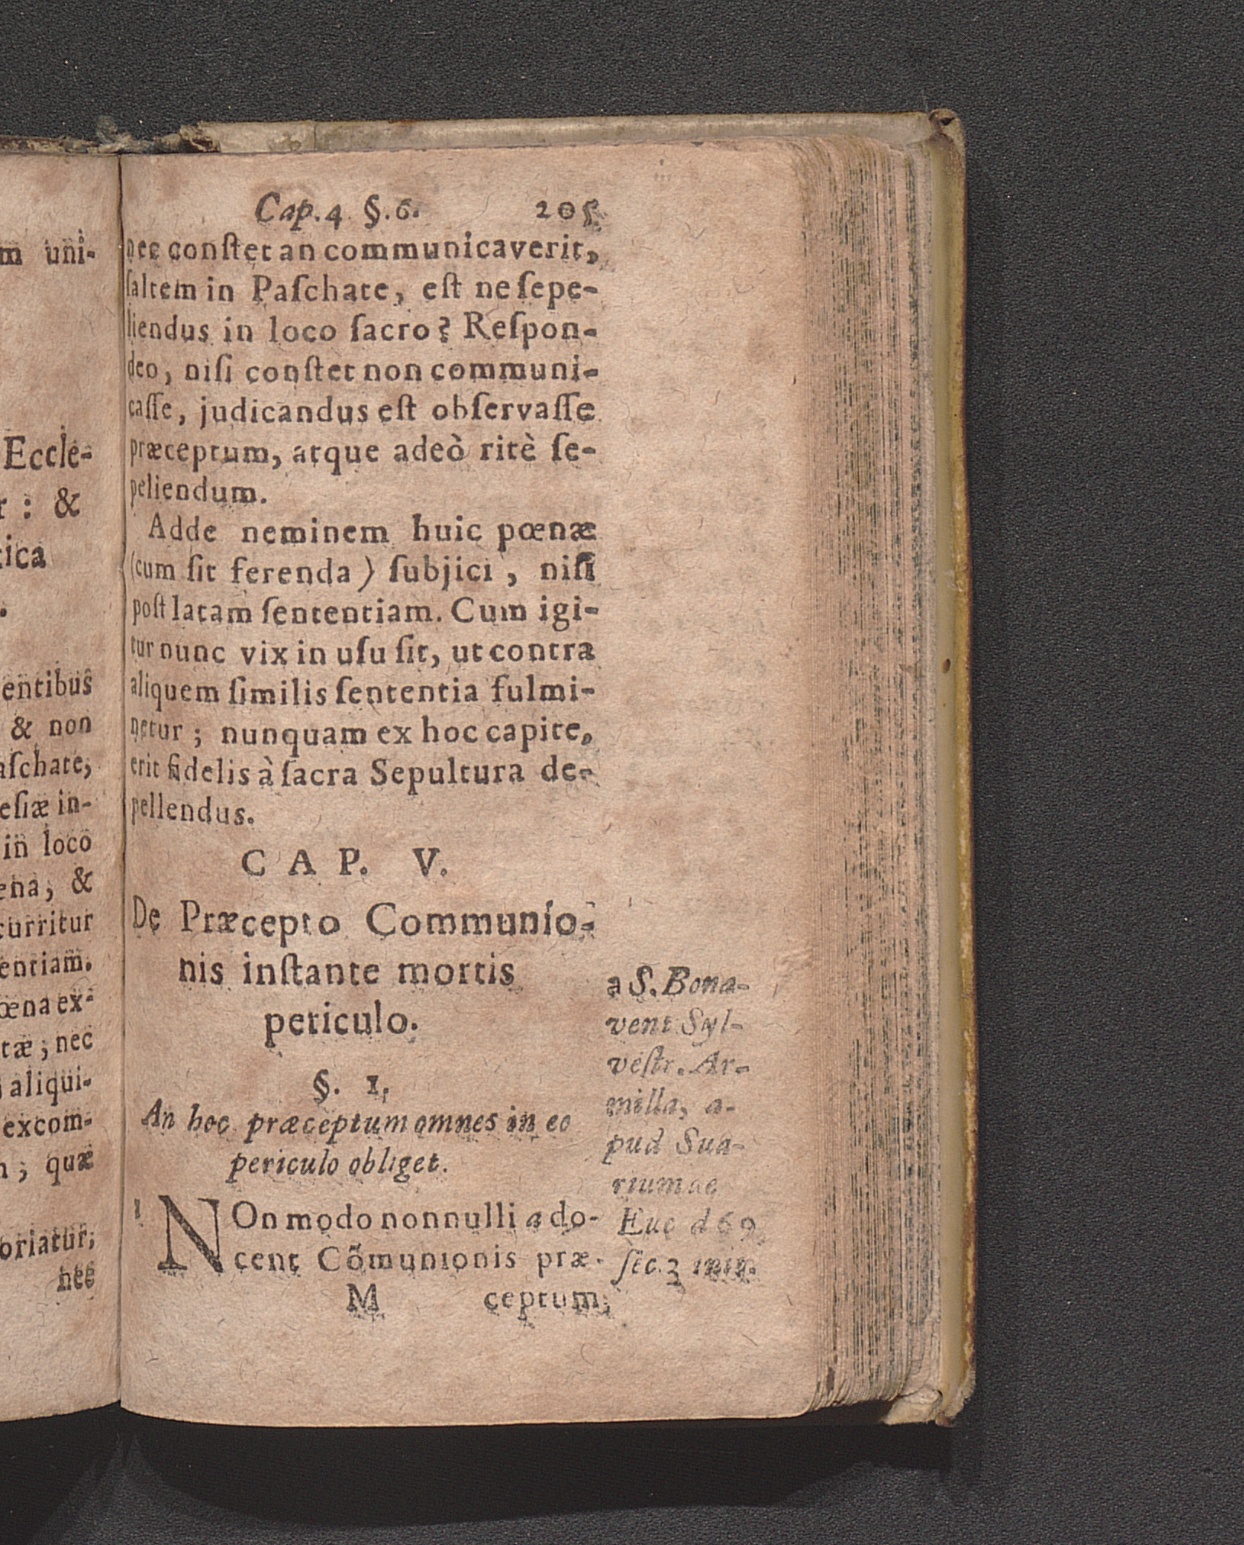 m uni-
Eccle-
r: &
tica
entibus
& non
aſchate,
eſiæ in-
in loco
ena, &
curritur
entiam.
œna ex-
tæ; nec
aliqui-
excom-
n; quæ
oriatur,
nec
Cap. 4 §. 6. 205
nec conſtet an communicaverit,
ſaltem in Paſchate, eſt ne ſepe-
liendus in loco ſacro? Reſpon-
deo, niſi conſtet non communi-
caſſe, judicandus eſt obſervaſſe
præceptum, atque adeò ritè ſe-
peliendum.
Adde neminem huic pœnæ
(cum ſit ferenda) ſubjici, niſi
poſt latam ſententiam. Cum igi-
tur nunc vix in uſu ſit, ut contra
aliquem ſimilis ſententia fulmi-
netur; nunquam ex hoc capite,
erit fidelis à ſacra Sepultura de-
pellendus.
CAP. V.
De Præcepto Communio-
nis inſtante mortis
periculo.
§. 1.
An hoc præceptum omnes in eo
periculo obliget.
1 NOn modo nonnulli a do-
cent Cõmunionis præ-
M ceptum,
a S. Bona-
vent Syl-
veſtr. Ar-
milla, a-
pud Sua-
rium de
Euc d 69
ſec. 3 init.